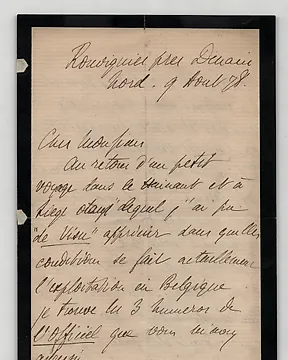 Rouvignies près Denain
Nord. 9 Aout 78.
Cher Monsieur
Au retour d'un petit
voyage dans le Hainaut et à
Liège duquel j'ai pu
"de Visu" apprécier dans quelles
conditions se fait actuellement
l'exploitation en Belgique
je trouve les 3 numeros de
l'Officiel que vous m'avez